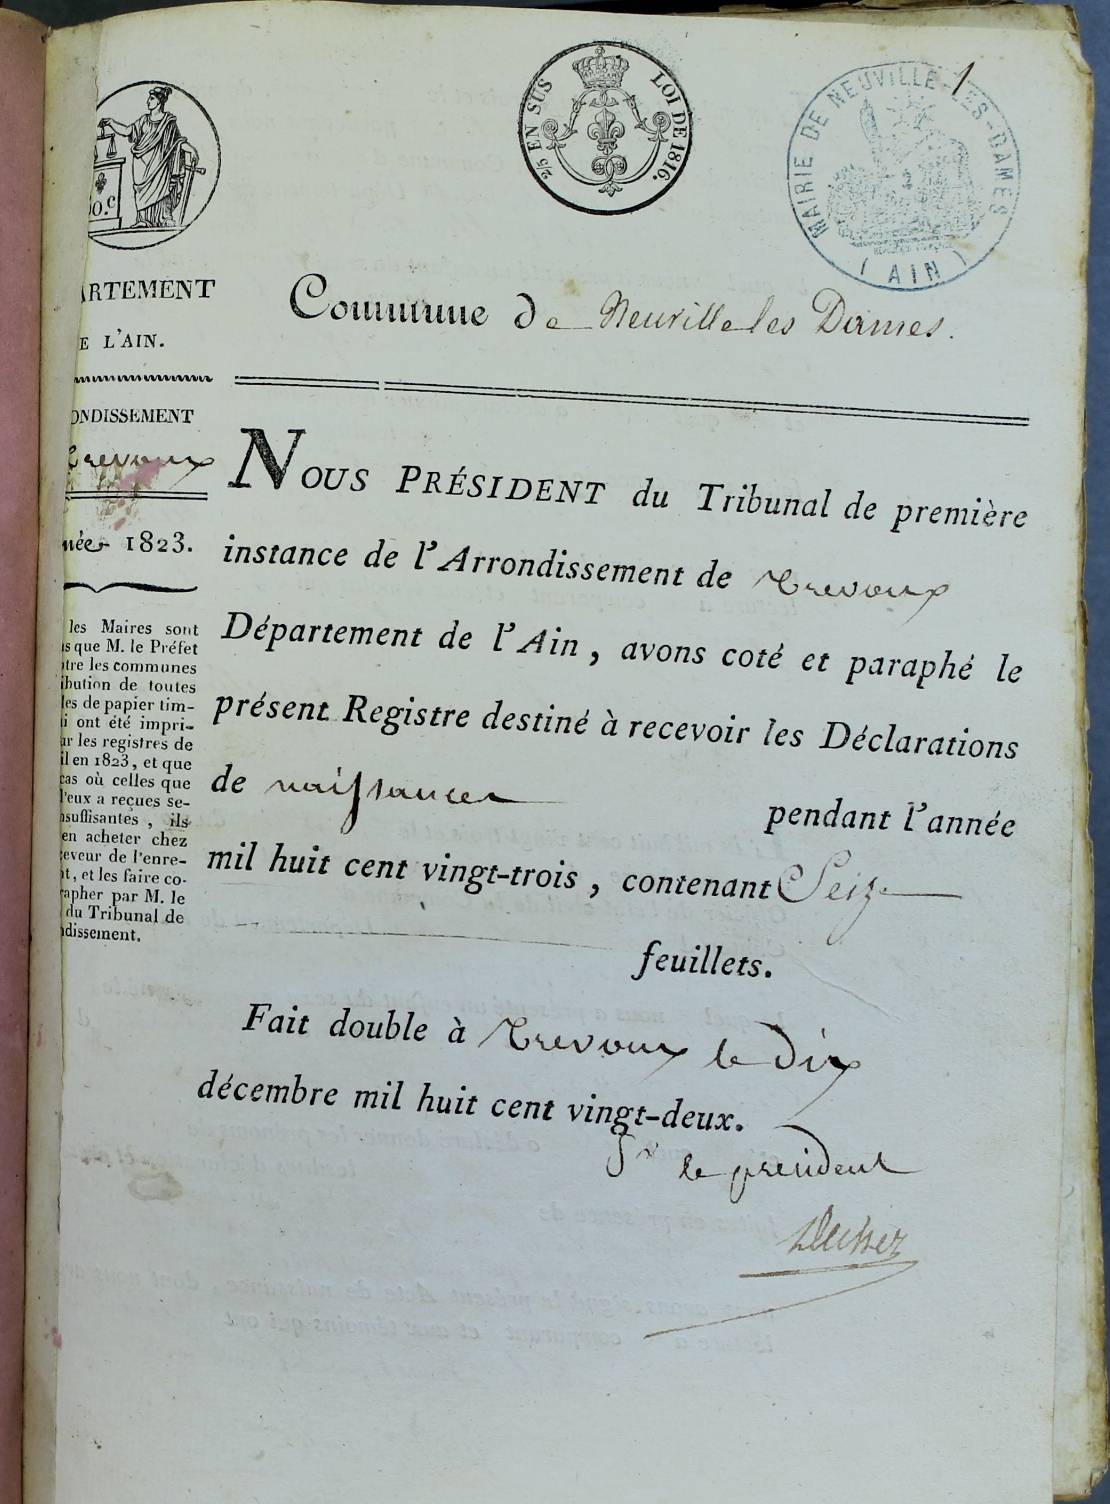 1
2/5 EN SUS LOI DE 1816.
MAIRIE DE NEUVILLE-LES-DAMES
(AIN)
0.c
ARTEMENT
E L'AIN.
ONDISSEMENT
Trevoux
née 1823.
les Maires sont
s que M. le Préfet
tre les communes
ibution de toutes
les de papier tim-
i ont été impri-
ar les registres de
il en 1823, et que
cas où celles que
l'eux a reçues se-
nsuffisantes, ils
en acheter chez
ceveur de l'enre-
t, et les faire co-
rapher par M. le
du Tribunal de
ndissement.
Commune de Neuville les Dames.
NOUS PRÉSIDENT du Tribunal de première
instance de l'Arrondissement de Trevoux
Département de l'Ain, avons coté et paraphé le
présent Registre destiné à recevoir les Déclarations
de naissances
pendant l'année
mil huit cent vingt-trois, contenant Seize
feuillets.
Fait double à Trevoux le dix
décembre mil huit cent vingt-deux.
le president